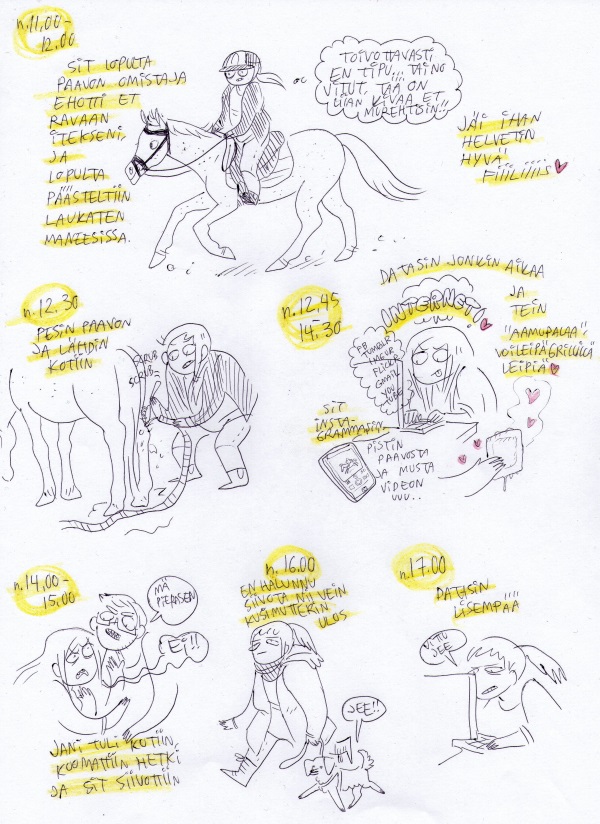 n. 11.00-
12.00
SIT LOPULTA
PAAVON OMISTAJA
EHOTTI ET
RAVAAN
ITEKSENI,
JA
LOPULTA
PÄÄSTELTIIN
LAUKATEN
MANEESISSA.
TOIVOTTAVASTI
EN TIPU... TAI NO
VITUT, TÄÄ ON
LIIAN KIVAA ET
MUREHTISIN!!
JÄI IHAN
HELVETIN
HYVÄ
FIILIIIIS
n. 12.30
PESIN PAAVON
JA LÄHDIN
KOTIIN
SCRUB
SCRUB
n. 12.45
14.30
DATASIN JONKIN AIKAA
JA
TEIN
"AAMUPALAA",
VOILEIPÄGRILLILLÄ
LEIPIÄ
INTERNET!
FB
TUMBLR
IMGUR
FLICKR
GMAIL
YOU
TUBE
SIT
INSTA-
GRAMMASIN.
PISTIN
PAAVOSTA
JA MUSTA
VIDEON
UUU..
n. 14.00-
15.00
MÄ
PIERASEN
EI!!
JANI TULI KOTIIN
KOOMATTIIN HETKI
JA SIT SIIVOTTIIN
n. 16.00
EN HALUNNU
SIIVOTA NII VEIN
KUSIMUTTERIN
ULOS
JEE!!
n. 17.00
DATASIN
LISEMPÄÄ
VITTU
JEE